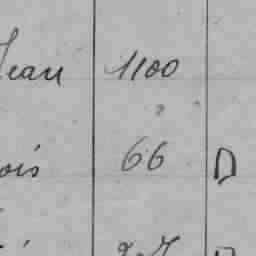 Jean 1100
ois 66 D